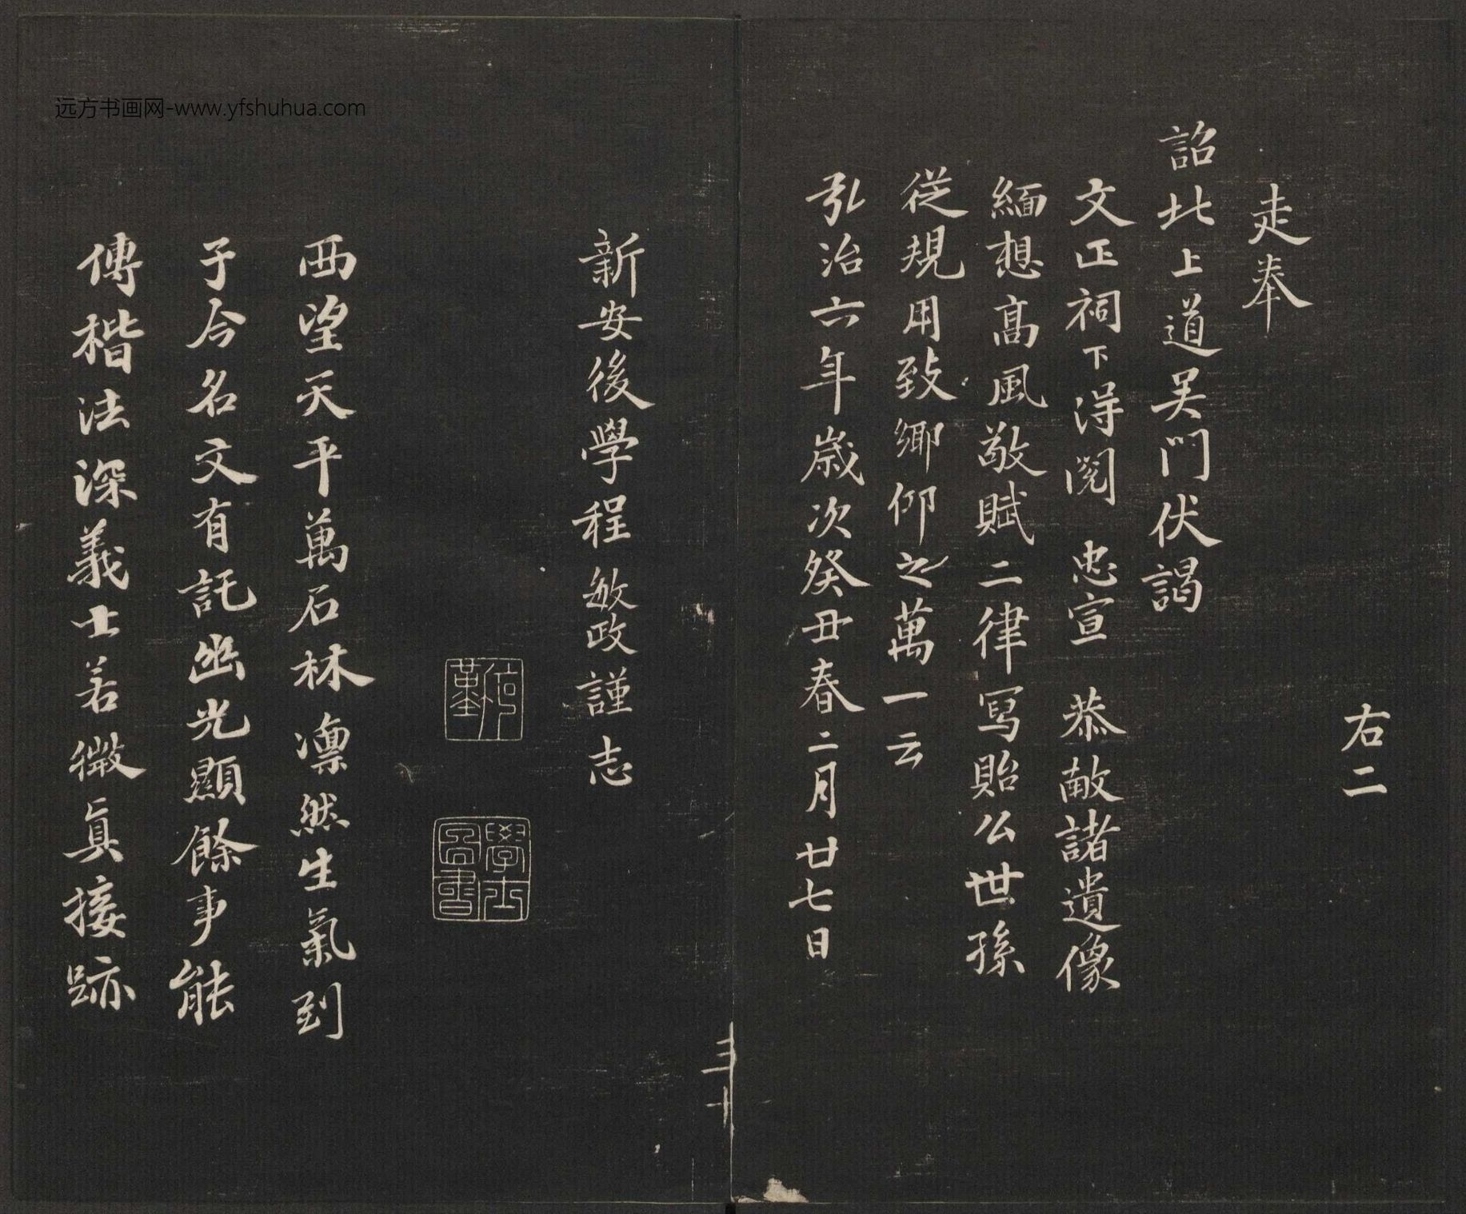 右二
走奉
詔北上道吴門伏謁
文正祠下得閱 忠宣 恭献諸遺像
緬想髙風敬賦二律写貽公世孫
從規用致鄉仰之萬一云
弘治六年歲次癸丑春二月廿七日
新安後學程敏政謹志
學士圖書
西望天平萬石林凛然生氣到
子今名文有託幽光顯餘事能
傳楷法深義士若微真接跡
三十
远方书画网-www.yfshuhua.com